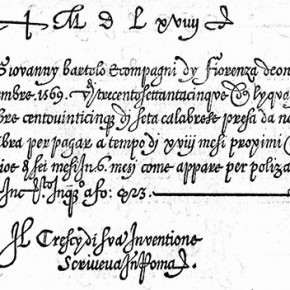 M D L xviiij
Giovanny bartolo & compagni dy Fiorenza deon
embre. 1569. trecentosettantacinque
bre centouinticinque dj seta calabrese presa da no
ibra per pagar a tempo dj xviii mesi proximi
sei mesi In 6. mesj come appare per poliza
823.
IL Crescy di sua Inventione
Scriveva In Roma